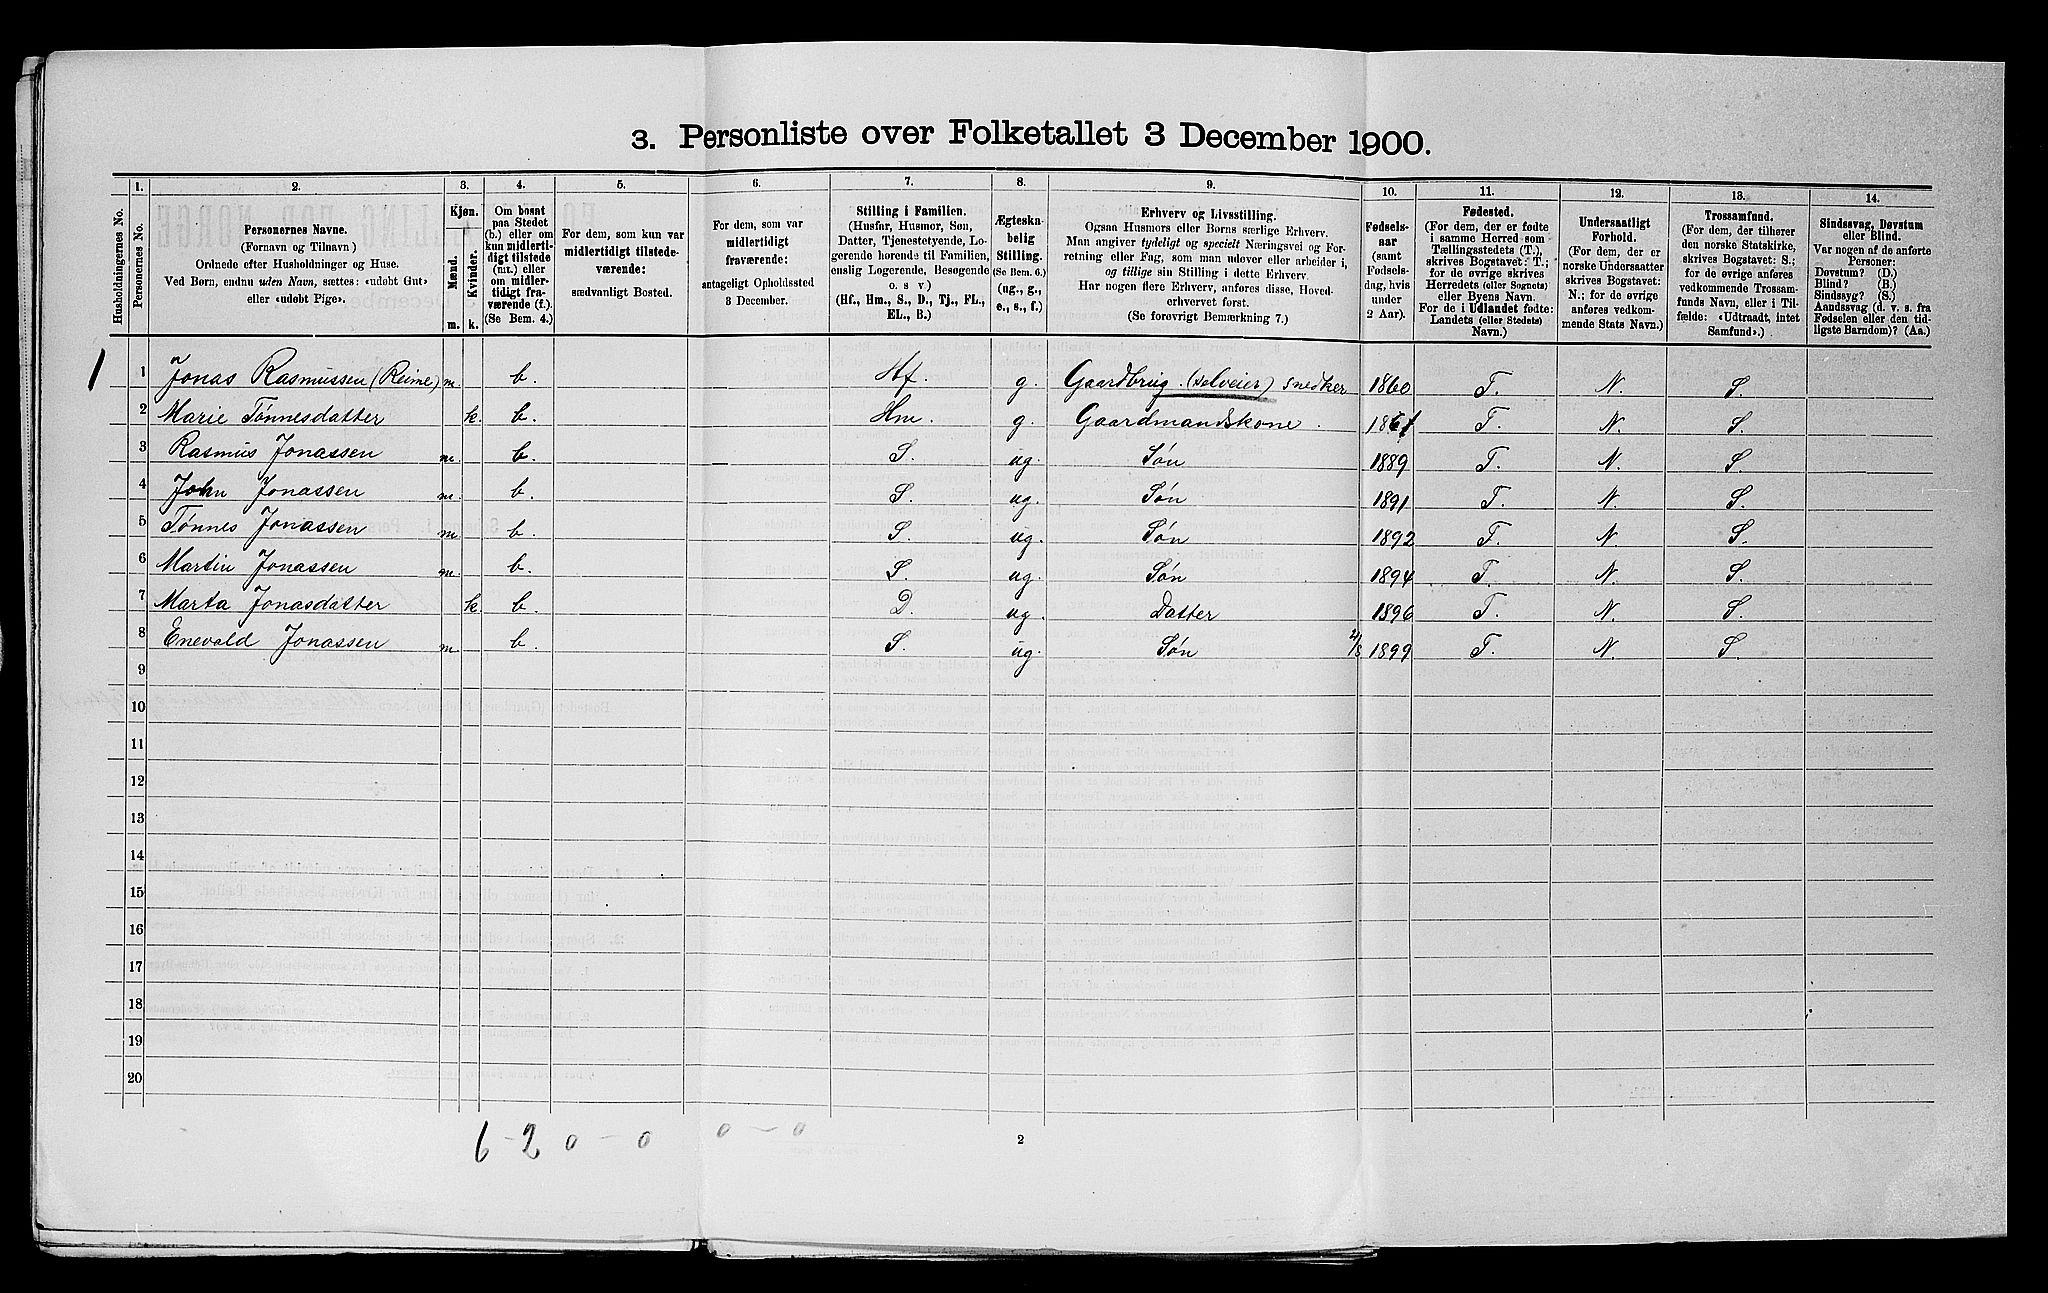 3. Personliste over Folketallet 3 December 1900.
Husholdningernes No.
1.
Personernes No.
2.
Personernes Navne.
(Fornavn og Tilnavn)
Ordnede efter Husholdninger og Huse.
Ved Børn, endnu uden Navn, sættes: «udøbt Gut»
eller «udøbt Pige».
3.
Kjøn.
Mænd.
Kvinder.
m.
k.
4.
Om bosat
paa Stedet
(b.) eller om
kun midlerti-
digt tilstede
(mt.) eller
om midler-
tidigt fra-
værende (f.).
(Se Bem. 4.)
5.
For dem, som kun var
midlertidigt tilstede-
værende:
sædvanligt Bosted.
6.
For dem, som var
midlertidigt
fraværende:
antageligt Opholdssted
3 December.
7.
Stilling i Familien.
(Husfar, Husmor, Søn,
Datter, Tjenestetyende, Lo-
gerende hørende til Familien,
enslig Logerende, Besøgende
o. s v)
(Hf., Hm., S., D., Tj., FL.,
EL., B.)
8.
Ægteska-
belig
Stilling.
(Se Bem. 6.)
(ug., g.,
e., s., f.)
9.
Erhverv og Livsstilling.
Ogsaa Husmors eller Børns særlige Erhverv.
Man angiver tydeligt og specielt Næringsvei og For-
retning eller Fag, som man udover eller arbeider i,
og tillige sin Stilling i dette Erhverv.
Har nogen flere Erhverv, anføres disse, Hoved-
erhvervet først.
(Se forøvrigt Bemærkning 7.)
10.
Fødsels-
aar
(samt
Fødsels-
dag, hvis
under
2 Aar).
11.
Fødested.
(For dem, der er fødte
i samme Herred som
Tællingsstedets (T.),
skrives Bogstavet: T.;
for de øvrige skrives
Herredets (eller Sognets)
eller Byens Navn.
For de i Udlandet fødte:
Landets (eller Stedets)
Navn.)
12.
Undersaatligt
Forhold.
(For dem, der er
norske Undersaatter
skrives Bogstavet:
N.; for de øvrige
anføres vedkom-
mende Stats Navn.)
13.
Trossamfund.
(For dem, der tilhører
den norske Statskirke,
skrives Bogstavet: S.;
for de øvrige anføres
vedkommende Trossam-
funds Navn, eller i Til-
fælde: «Udtraadt, intet
Samfund».)
14.
Sindssvag, Døvstum
eller Blind.
Var nogen af de anførte
Personer:
Døvstum? (D.)
Blind? (B.)
Sindssyg? (S.)
Aandssvag (d. v. s. fra
Fødselen eller den tid-
ligste Barndom)? (Aa.)
1 1 Jonas Rasmussen (Reime) m. b. Hf. g. Gaardbrug. (selveier) snedker 1860 T. N. S.
2 Marie Tønnesdatter k. b. Hm. g. Gaardmandskone. 1861 T. N. S.
3 Rasmus Jonassen m. b. S. ug. Søn 1889 T. N. S.
4 John Jonassen m. b. S. ug. Søn 1891 T. N. S.
5 Tønnes Jonassen m. b. S. ug. Søn 1892 T. N. S.
6 Martin Jonassen m. b. S. ug. Søn 1894 T. N. S.
7 Marta Jonasdatter k. b. D. ug. Datter 1896 T. N. S.
8 Enevald Jonassen m. b. S. ug. Søn 1899 T. N. S.
9
10
11
12
13
14
15
16
17
18
19
20
6 - 2 0 - 0 0 - 0
2